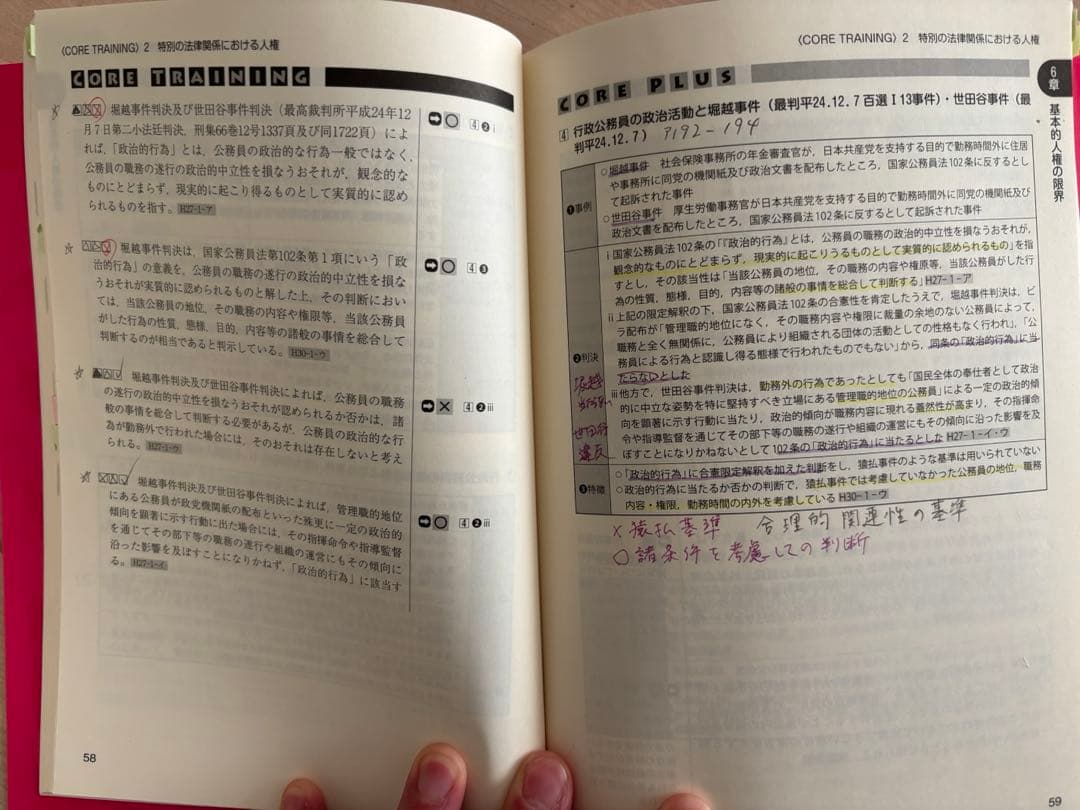 〈CORE TRAINING〉2　特別の法律関係における人権
CORE TRAINING
堀越事件判決及び世田谷事件判決（最高裁判所平成24年12
月7日第二小法廷判決，刑集66巻12号1337頁及び同1722頁）によ
れば，「政治的行為」とは，公務員の政治的な行為一般ではなく，
公務員の職務の遂行の政治的中立性を損なうおそれが，観念的な
ものにとどまらず，現実的に起こり得るものとして実質的に認め
られるものを指す。H27-1-ア
➡○ 4❷i
堀越事件判決は，国家公務員法第102条第1項にいう「政
治的行為」の意義を，公務員の職務の遂行の政治的中立性を損な
うおそれが実質的に認められるものと解した上，その判断におい
ては，当該公務員の地位，その職務の内容や権限等，当該公務員
がした行為の性質，態様，目的，内容等の諸般の事情を総合して
判断するのが相当であると判示している。H30-1-ウ
➡○ 4❸
堀越事件判決及び世田谷事件判決によれば，公務員の職務
の遂行の政治的中立性を損なうおそれが認められるか否かは，諸
般の事情を総合して判断する必要があるが，公務員の政治的な行
為が勤務外で行われた場合には，そのおそれは存在しないと考え
られる。H27-1-ウ
➡× 4❷iii
堀越事件判決及び世田谷事件判決によれば，管理職的地位
にある公務員が政党機関紙の配布といった殊更に一定の政治的
傾向を顕著に示す行動に出た場合には，その指揮命令や指導監督
を通じてその部下等の職務の遂行や組織の運営にもその傾向に
沿った影響を及ぼすことになりかねず，「政治的行為」に該当す
る。H27-1-イ
➡○ 4❷iii
58
〈CORE TRAINING〉2　特別の法律関係における人権
CORE PLUS
6章
基本的人権の限界
4 行政公務員の政治活動と堀越事件（最判平24.12.7百選Ⅰ13事件）・世田谷事件（最
判平24.12.7） P192-194
❶事例
○堀越事件　社会保険事務所の年金審査官が，日本共産党を支持する目的で勤務時間外に住居
や事務所に同党の機関紙及び政治文書を配布したところ，国家公務員法102条に反するとし
て起訴された事件
○世田谷事件　厚生労働事務官が日本共産党を支持する目的で勤務時間外に同党の機関紙及び
政治文書を配布したところ，国家公務員法102条に反するとして起訴された事件
❷判決
ⅰ国家公務員法102条の「『政治的行為』とは，公務員の職務の政治的中立性を損なうおそれが，
観念的なものにとどまらず，現実的に起こりうるものとして実質的に認められるもの」を指
すとし，その該当性は「当該公務員の地位，その職務の内容や権原等，当該公務員がした行
為の性質，態様，目的，内容等の諸般の事情を総合して判断する」H27-1-ア
ⅱ上記の限定解釈の下，国家公務員法102条の合憲性を肯定したうえで，堀越事件判決は，ビ
ラ配布が「管理職的地位になく，その職務内容や権限に裁量の余地のない公務員によって，
職務と全く無関係に，公務員により組織される団体の活動としての性格もなく行われ」，「公
務員による行為と認識し得る態様で行われたものでもない」から，同条の「政治的行為」に当
たらないとした
堀越
ⅲ他方で，世田谷事件判決は，勤務外の行為であったとしても「国民全体の奉仕者として政治
的に中立な姿勢を特に堅持すべき立場にある管理職的地位の公務員」による一定の政治的傾
向を顕著に示す行動に当たり，政治的傾向が職務内容に現れる蓋然性が高まり，その指揮命
令や指導監督を通じてその部下等の職務の遂行や組織の運営にもその傾向に沿った影響を及
ぼすことになりかねないとして102条の「政治的行為」に当たるとした H27-1-イ・ウ
世田谷
違反
❸特徴
○「政治的行為」に合憲限定解釈を加えた判断をし，猿払事件のような基準は用いられていない
○政治的行為に当たるか否かの判断で，猿払事件では考慮していなかった公務員の地位，職務
内容・権限，勤務時間の内外を考慮している H30-1-ウ
×猿払基準　合理的関連性の基準
○諸条件を考慮しての判断
59